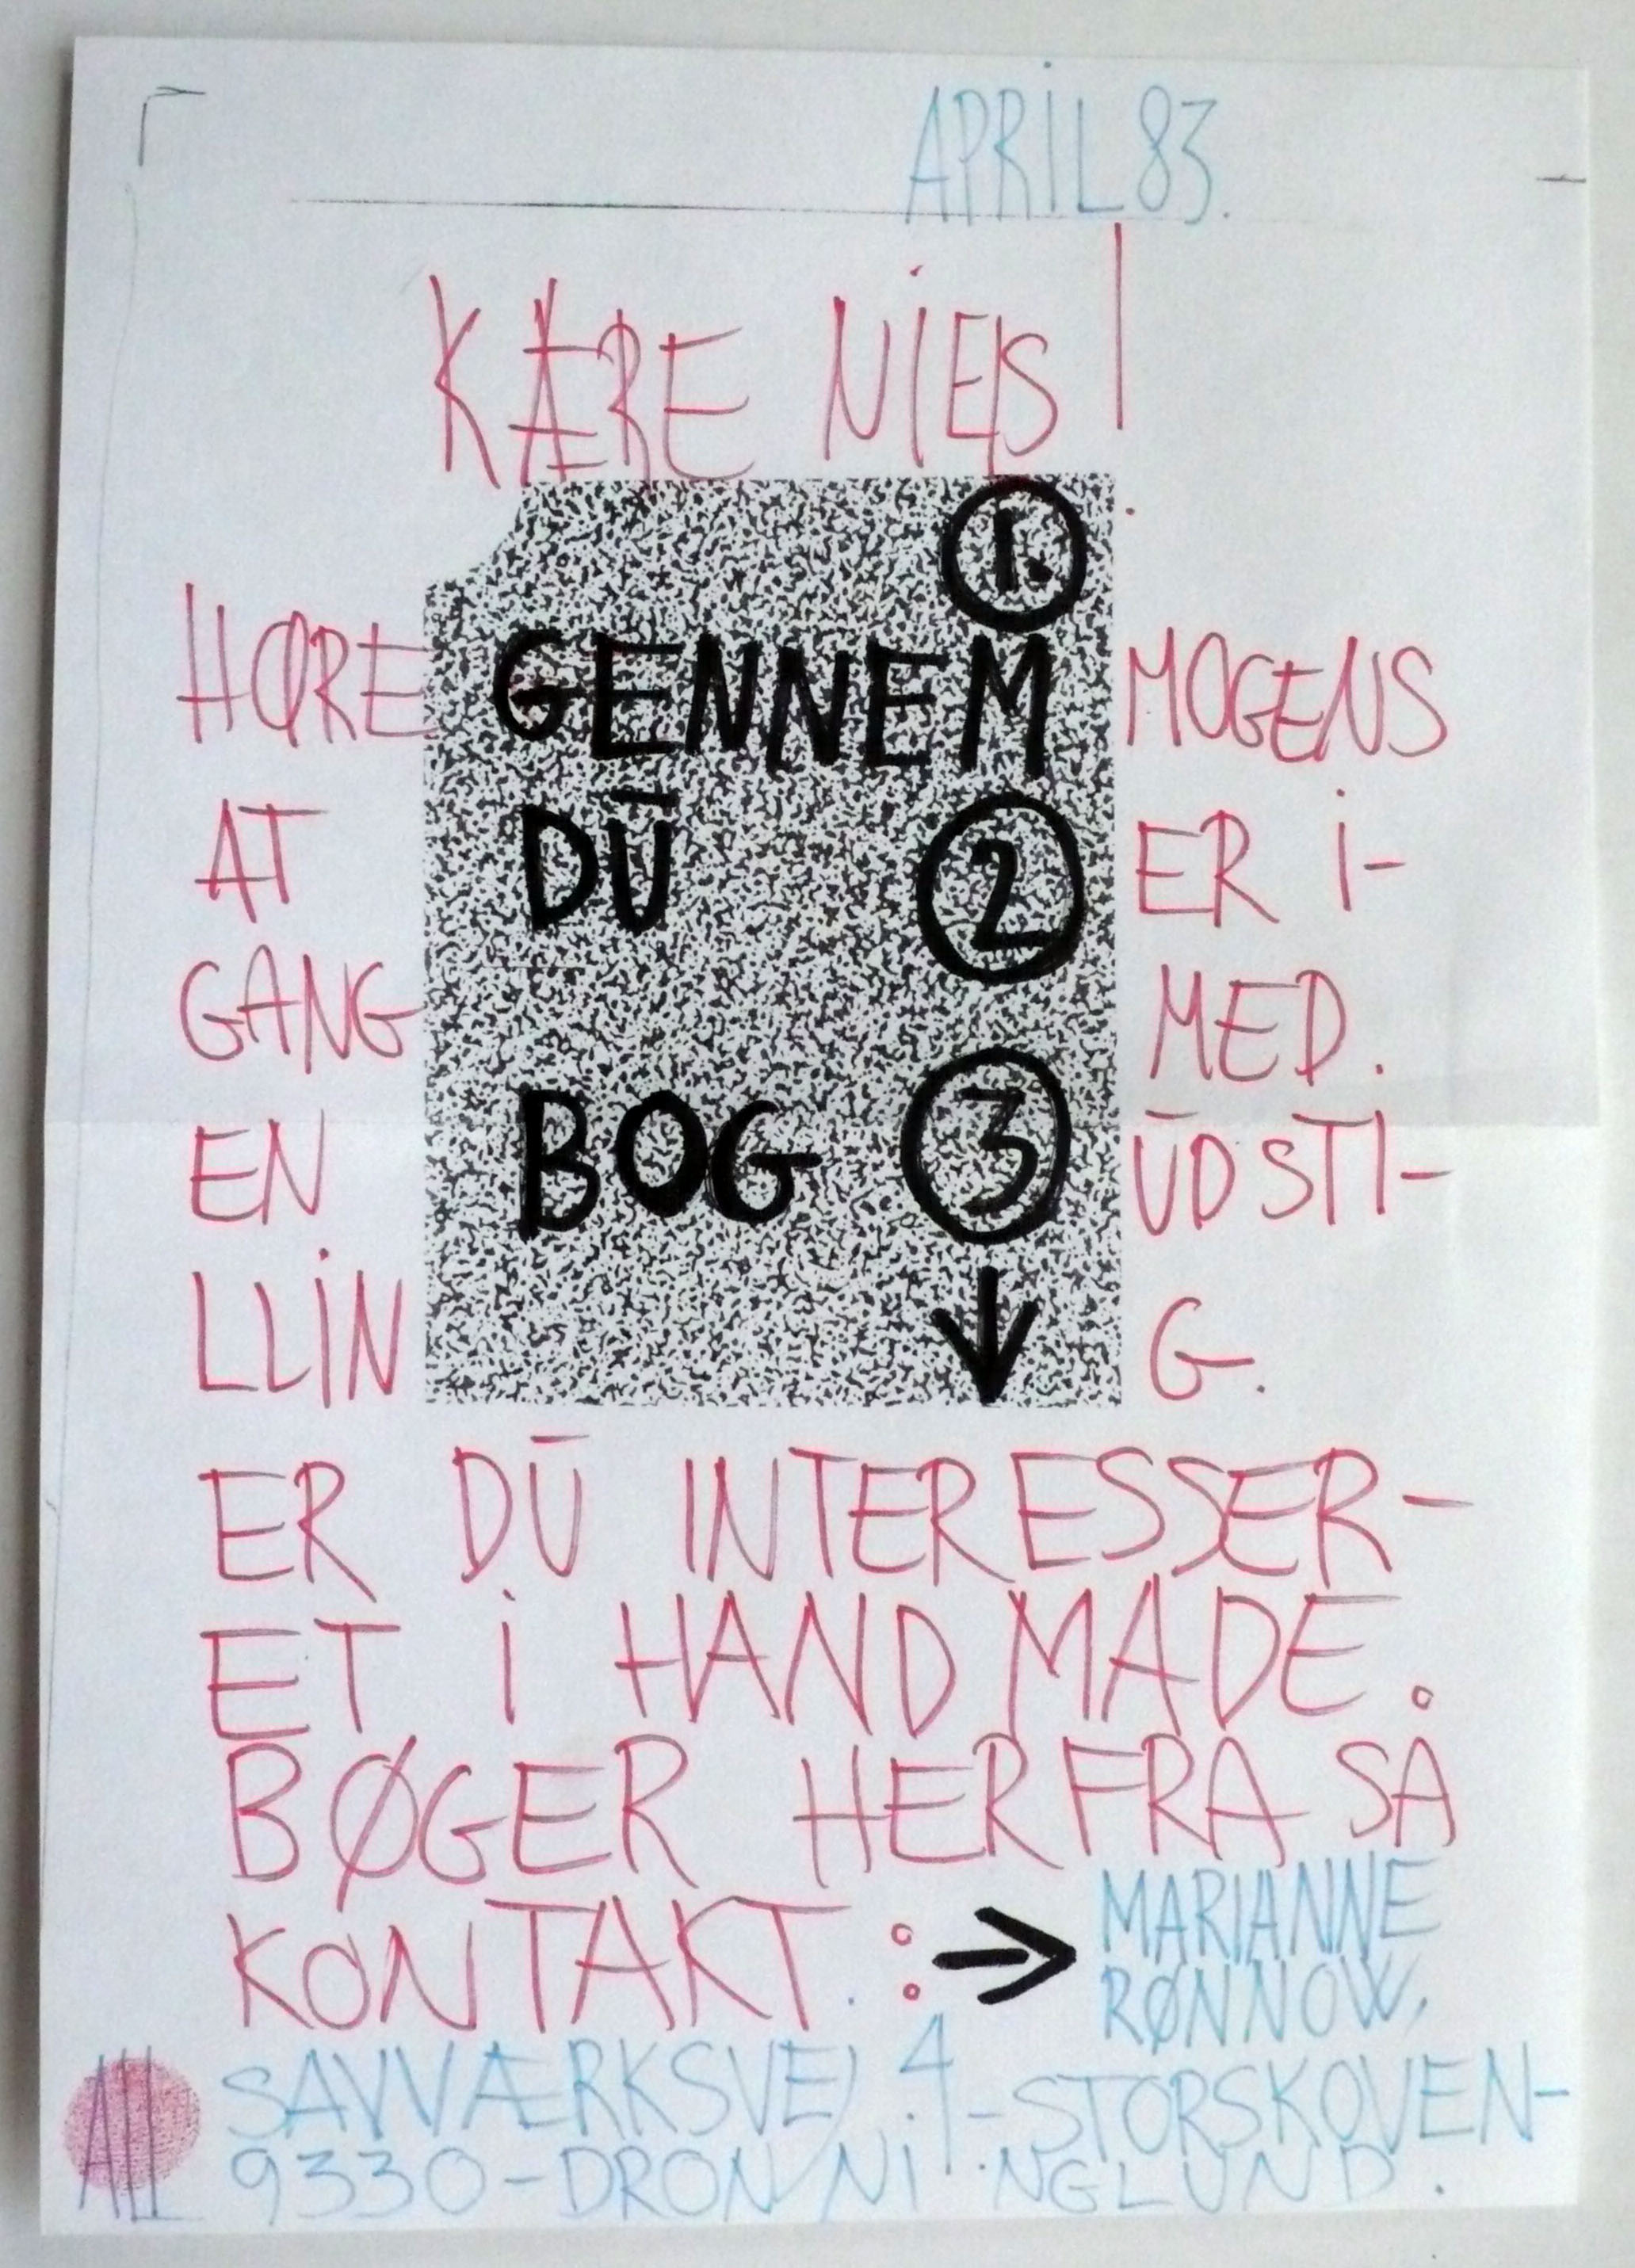 APRIL 83.
KÆRE NIELS!
1.
HØRE GENNEM MOGENS
AT DŪ 2 ER I-
GANG MED.
EN BOG 3 ŪDSTI-
LLIN G.
ER DŪ INTERESSER-
ET I HANDMADE.
BØGER HERFRA SÅ
KONTAKT. :→ MARIANNE
RØNNOW,
SAVVÆRKSVEJ 4.-STORSKOVEN-
9330-DRONNINGLUND.